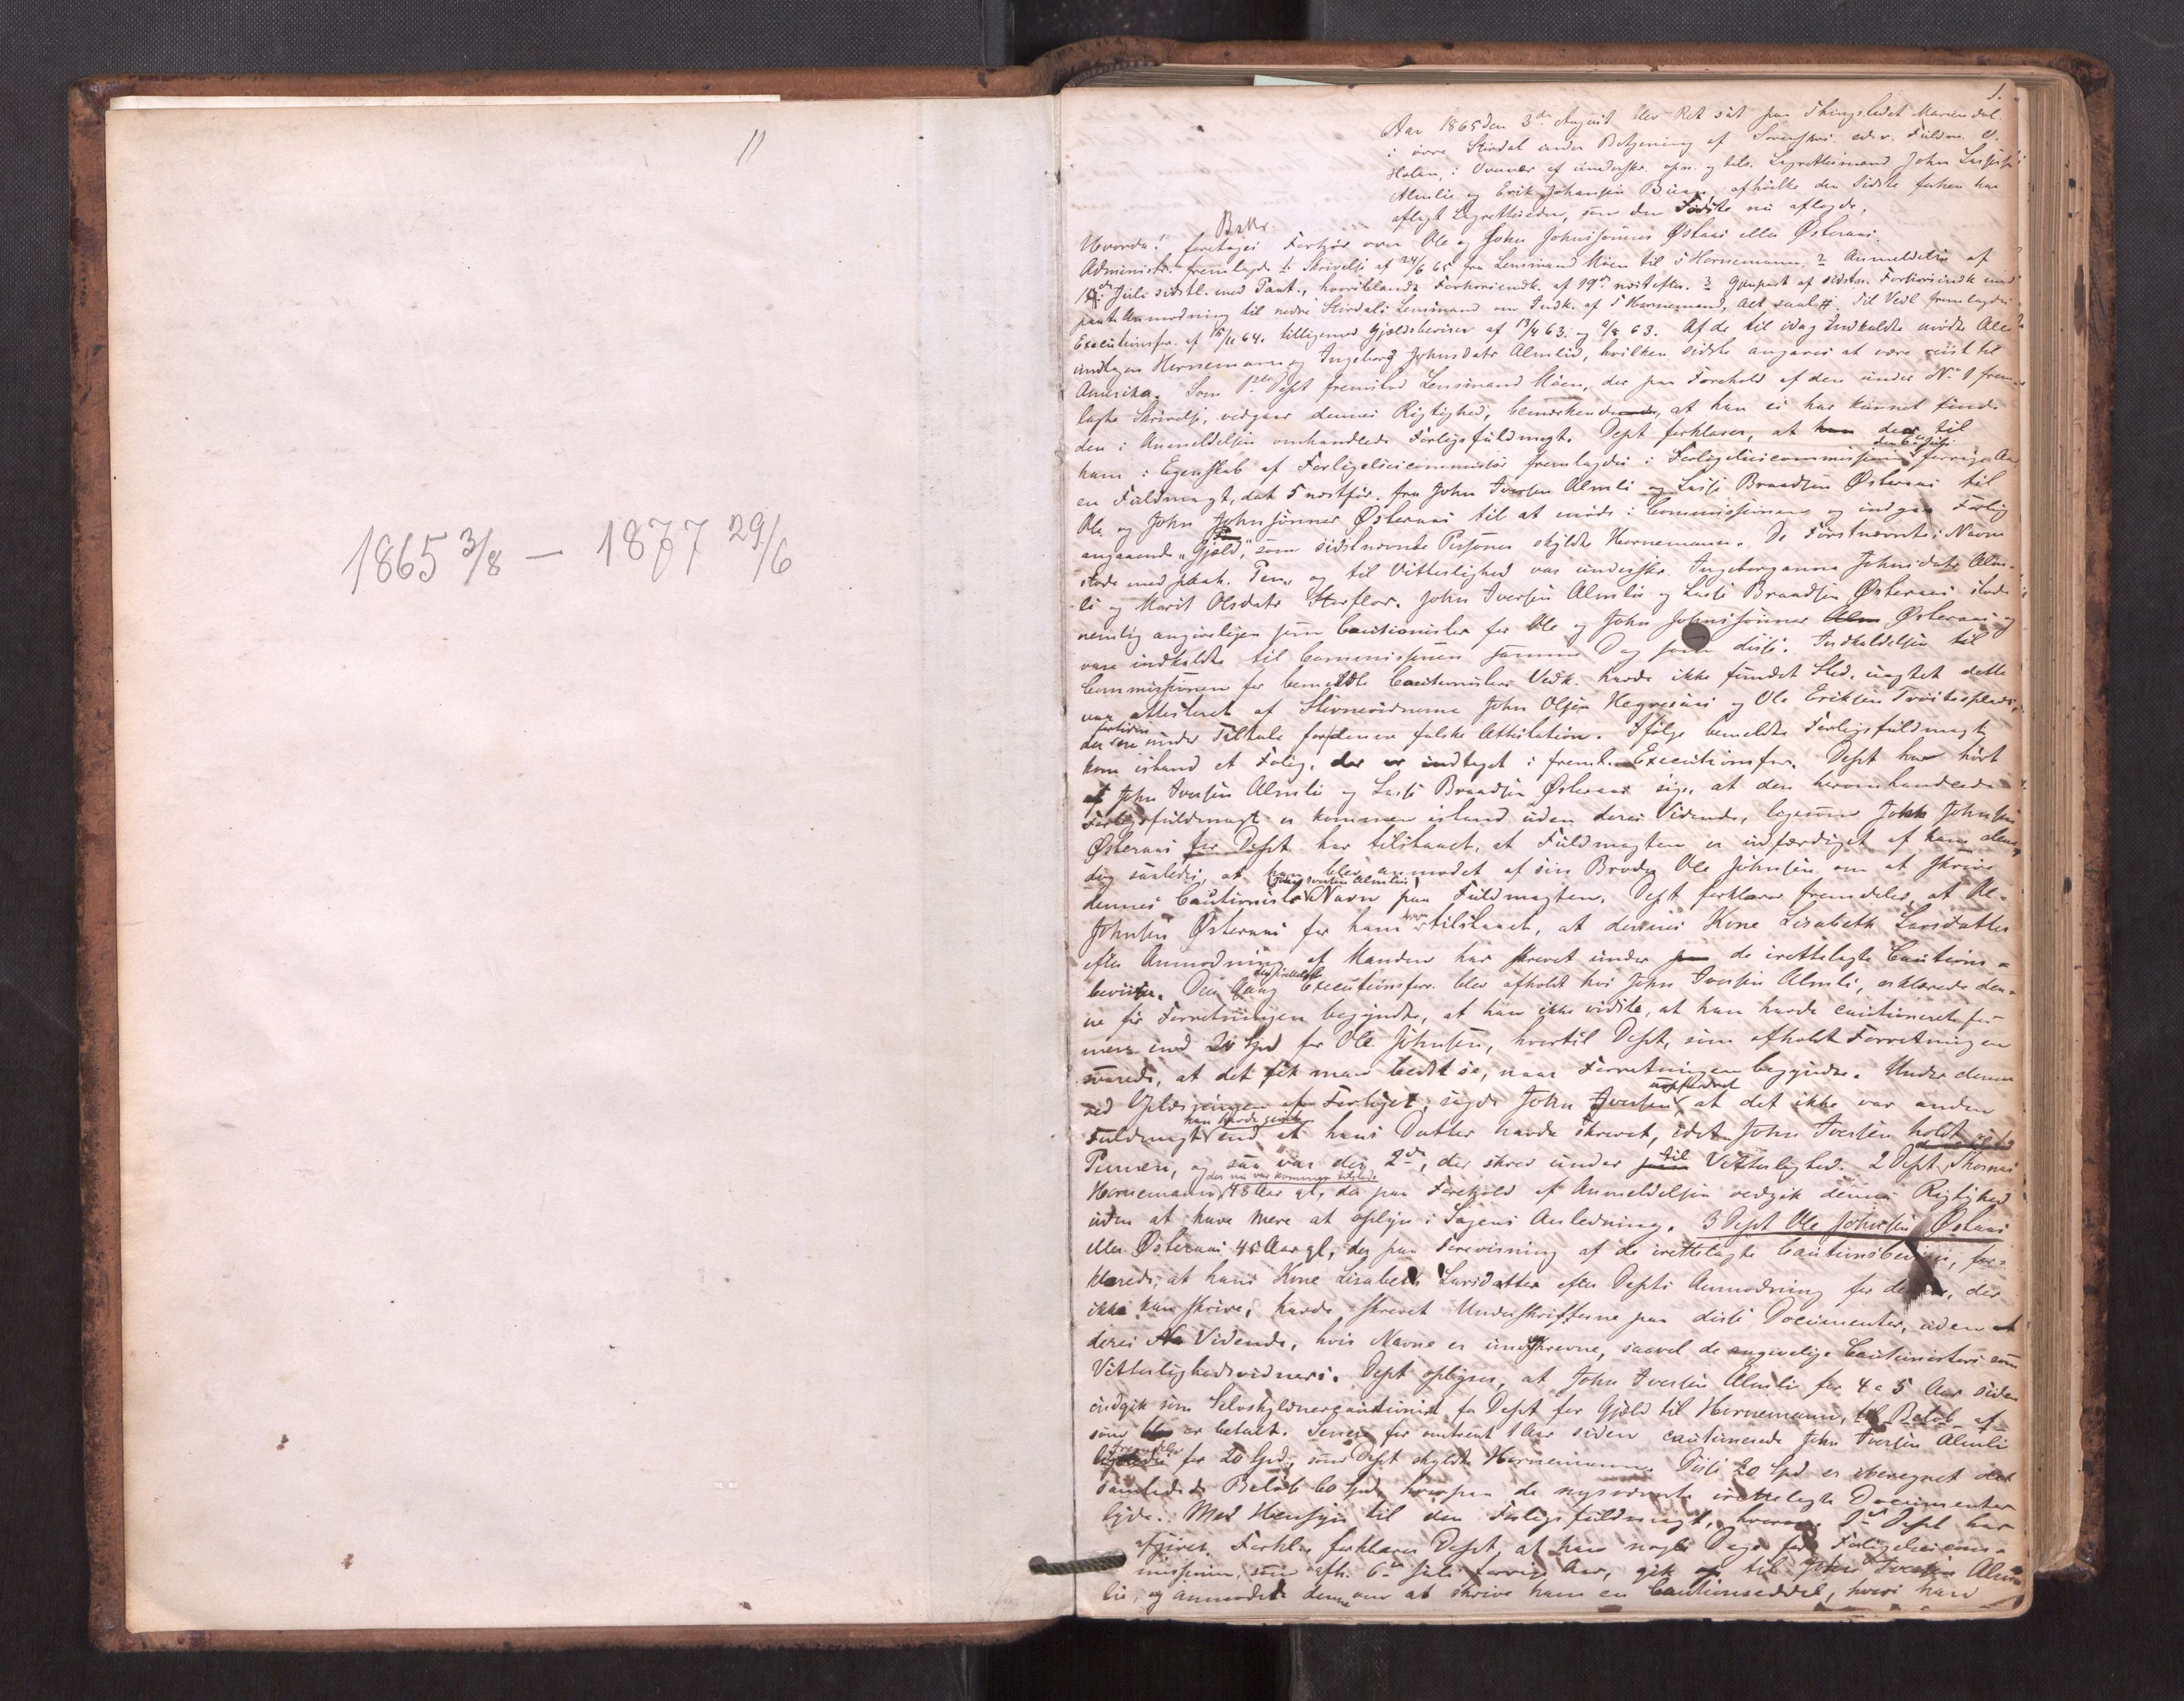 11
1865 3/8 — 1877 29/6
1.
Aar 1865 den 3die August blev Ret sat paa Thingstedet Mariendal
i øvre Stordal under Betjening af Sorenskr. edsv. Fuldm. O.
Holan, i Overvær af underskr. opn. og tils. Lagrettesmænd John
Almlie og Erik Johansen af hvilke den Sidste forhen har
aflagt Lagretteseden, som den Første nu aflagde,
Bskr.
Hvorda: foretages Forhør over Ole og John Johnssønner Østaas eller Østeraas.
Administr. fremlagde 1: Skrivelse af 24/6 65 fra Lensmand Moen til Hornemann. 2 Anmeldelse af
Juli sidstl. med Paat., hvoriblandt af 19de næstefter. 3 Gjenpart af sidstn.
Anmodning til nedre Stordals Lensmand om Indk. af Hornemand, Alt saal#. Til Vedl fremlagdes
Executionsfor. af 64. tilligemed Gjældsbeviser af 13/4 63. og 63. Af de til idag Indkaldte mødte Alle
undtagen Hornemann og Ingeborg Johnsdatr Almlid, hvilken sidste angaves at være reist til
Amerika. Som 1ste Dept fremstod Lensmand Moen, der paa Forehold af den under No 1 frem-
lagte Skrivelse, vedgaar dennes Rigtighed, bemærkende, at han ei har kunnet finde
den i Anmeldelsen omhandlede Forligsfuldmagt. Dept forklarer, at der til
ham i Egenskab af Forligelsescommissær fremlagdes i Forligelsescommissionen den 6te Juli forrige Aar
en Fuldmagt, dat 5 næstfør. fra John Iversen Almli og Lasse Braadsen Østeraas til
Ole og John Johnsønner Østeraas til at møde i Commissionen og indgaa Forlig
angaaende „Gjæld", som sidstnævnte Personer skyldte Hornemann. De Førstnævntes Navne
stode med paah. Pen, og til Vitterlighed var underskr. Ingeborganna Johnsdatr Alm-
li og Marit Olsdatr Storflor. John Iversen Almlie og Lasse Braadsen Østeraas stode
nemlig angiveligen som Cautionister for Ole og John Johnssønner Østeraas og
vare indkaldte til Commissionen samme Dag som disse. Indkaldelsen til
Commissionen for bemeldte Cautionisters Vedk. havde ikke fundet Sted, uagtet dette
var attesteret af Stevnevidnerne John Olsen Hegresaas og Ole Eriksen
der ere under Tiltale for denne falske Attestation. Ifølge bemeldte Forligsfuldmagt
kom istand et Forlig, der er indtaget i fremlh Executionsfor. Dept har hørt
af John Iversen Almli og Lasse Braadsen Østeraas sige, at den heromhandlede
Forligsfuldmagt er kommen istand uden deres Vidende, ligesom John Johnsen
Østeraas for Dept har tilstaaet, at Fuldmagten er udfærdiget af ham alene,
dog saaledes, at han blev anmodet af sin Broder Ole Johnsen om at skrive
dennes Cautionists (John Iversen Almlis) Navn paa Fuldmagten. Dept forklarer fremdeles, at Ole
Johnsen Østeraas for ham har tilstaaet, at dennes Kone Lisabeth Larsdatter
efter Anmodning af Manden har skrevet under de irettelagte Cautions-
beviser. Den Gang Executionsforr. blev afholdt hos John Iversen Almli, erklærede den-
ne før Forretningen begyndte, at han ikke vidste, at han havde cautioneret for
mere end 20 Spd for Ole Johnsen, hvortil Dept, som afholdt Forretningen
svarede, at det fik man bedst se, naar Forretningen begyndte. Under denne
ved Oplæsningen af Forliget, sagde John Iversen uopfordret, at det ikke var anden
Fuldmagt han havde givet end at hans Datter havde skrevet, idet John Iversen holdt i
Pennen, og saa var der 2de, der skrev under til Vitterlighed. 2 Dept Thomas
Hornemann, der nu var kommen tilstede 48 Aar gl, der paa Forehold af Anmeldelsen vedgik dennes Rigtighed
uden at have mere at oplyse i Sagens Anledning. 3 Dept Ole Johnsen Østaas
eller Østeraas 45 Aar gl, der paa Forevisning af de irettelagte Cautionsbeviser, for-
klarede, at hans Kone Lisabeth Larsdatter efter Depts Anmodning for denne, der
ikke kan skrive, havde skrevet Underskrifterne paa disse Documenter, uden
deres Vidende, hvis Navne er underskrevne, saavel de angivelige Cautionisters som
Vitterlighedsvidners. Dept oplyser, at John Iversen Almlie for 4 a 5 Aar siden
indgik som Selvskyldnercautionist for Dept for Gjæld til Hornemann,
som er betalt. Senere for omtrent 1 Aar siden cautionerede John Iversen Almli
fremdeles for 20 Spd, som Dept skyldte Hornemann. Disse 20 Spd er iberegnet det
samlede Beløb 60 Spd, hvorpaa de nysnævnte irettelagte Documenter
lyde. Med Hensyn til den Forligsfuldmagt, hvorom 1ste Dept har
afgivet Forklar. forklarer Dept, at han nogle Dage før Forligelsescom-
missionen, som afh. 6te Juli forrige Aar, gik til John Iversen Alm-
lie, og anmodede denne om at skrive ham en Cautionseddel, hvori han